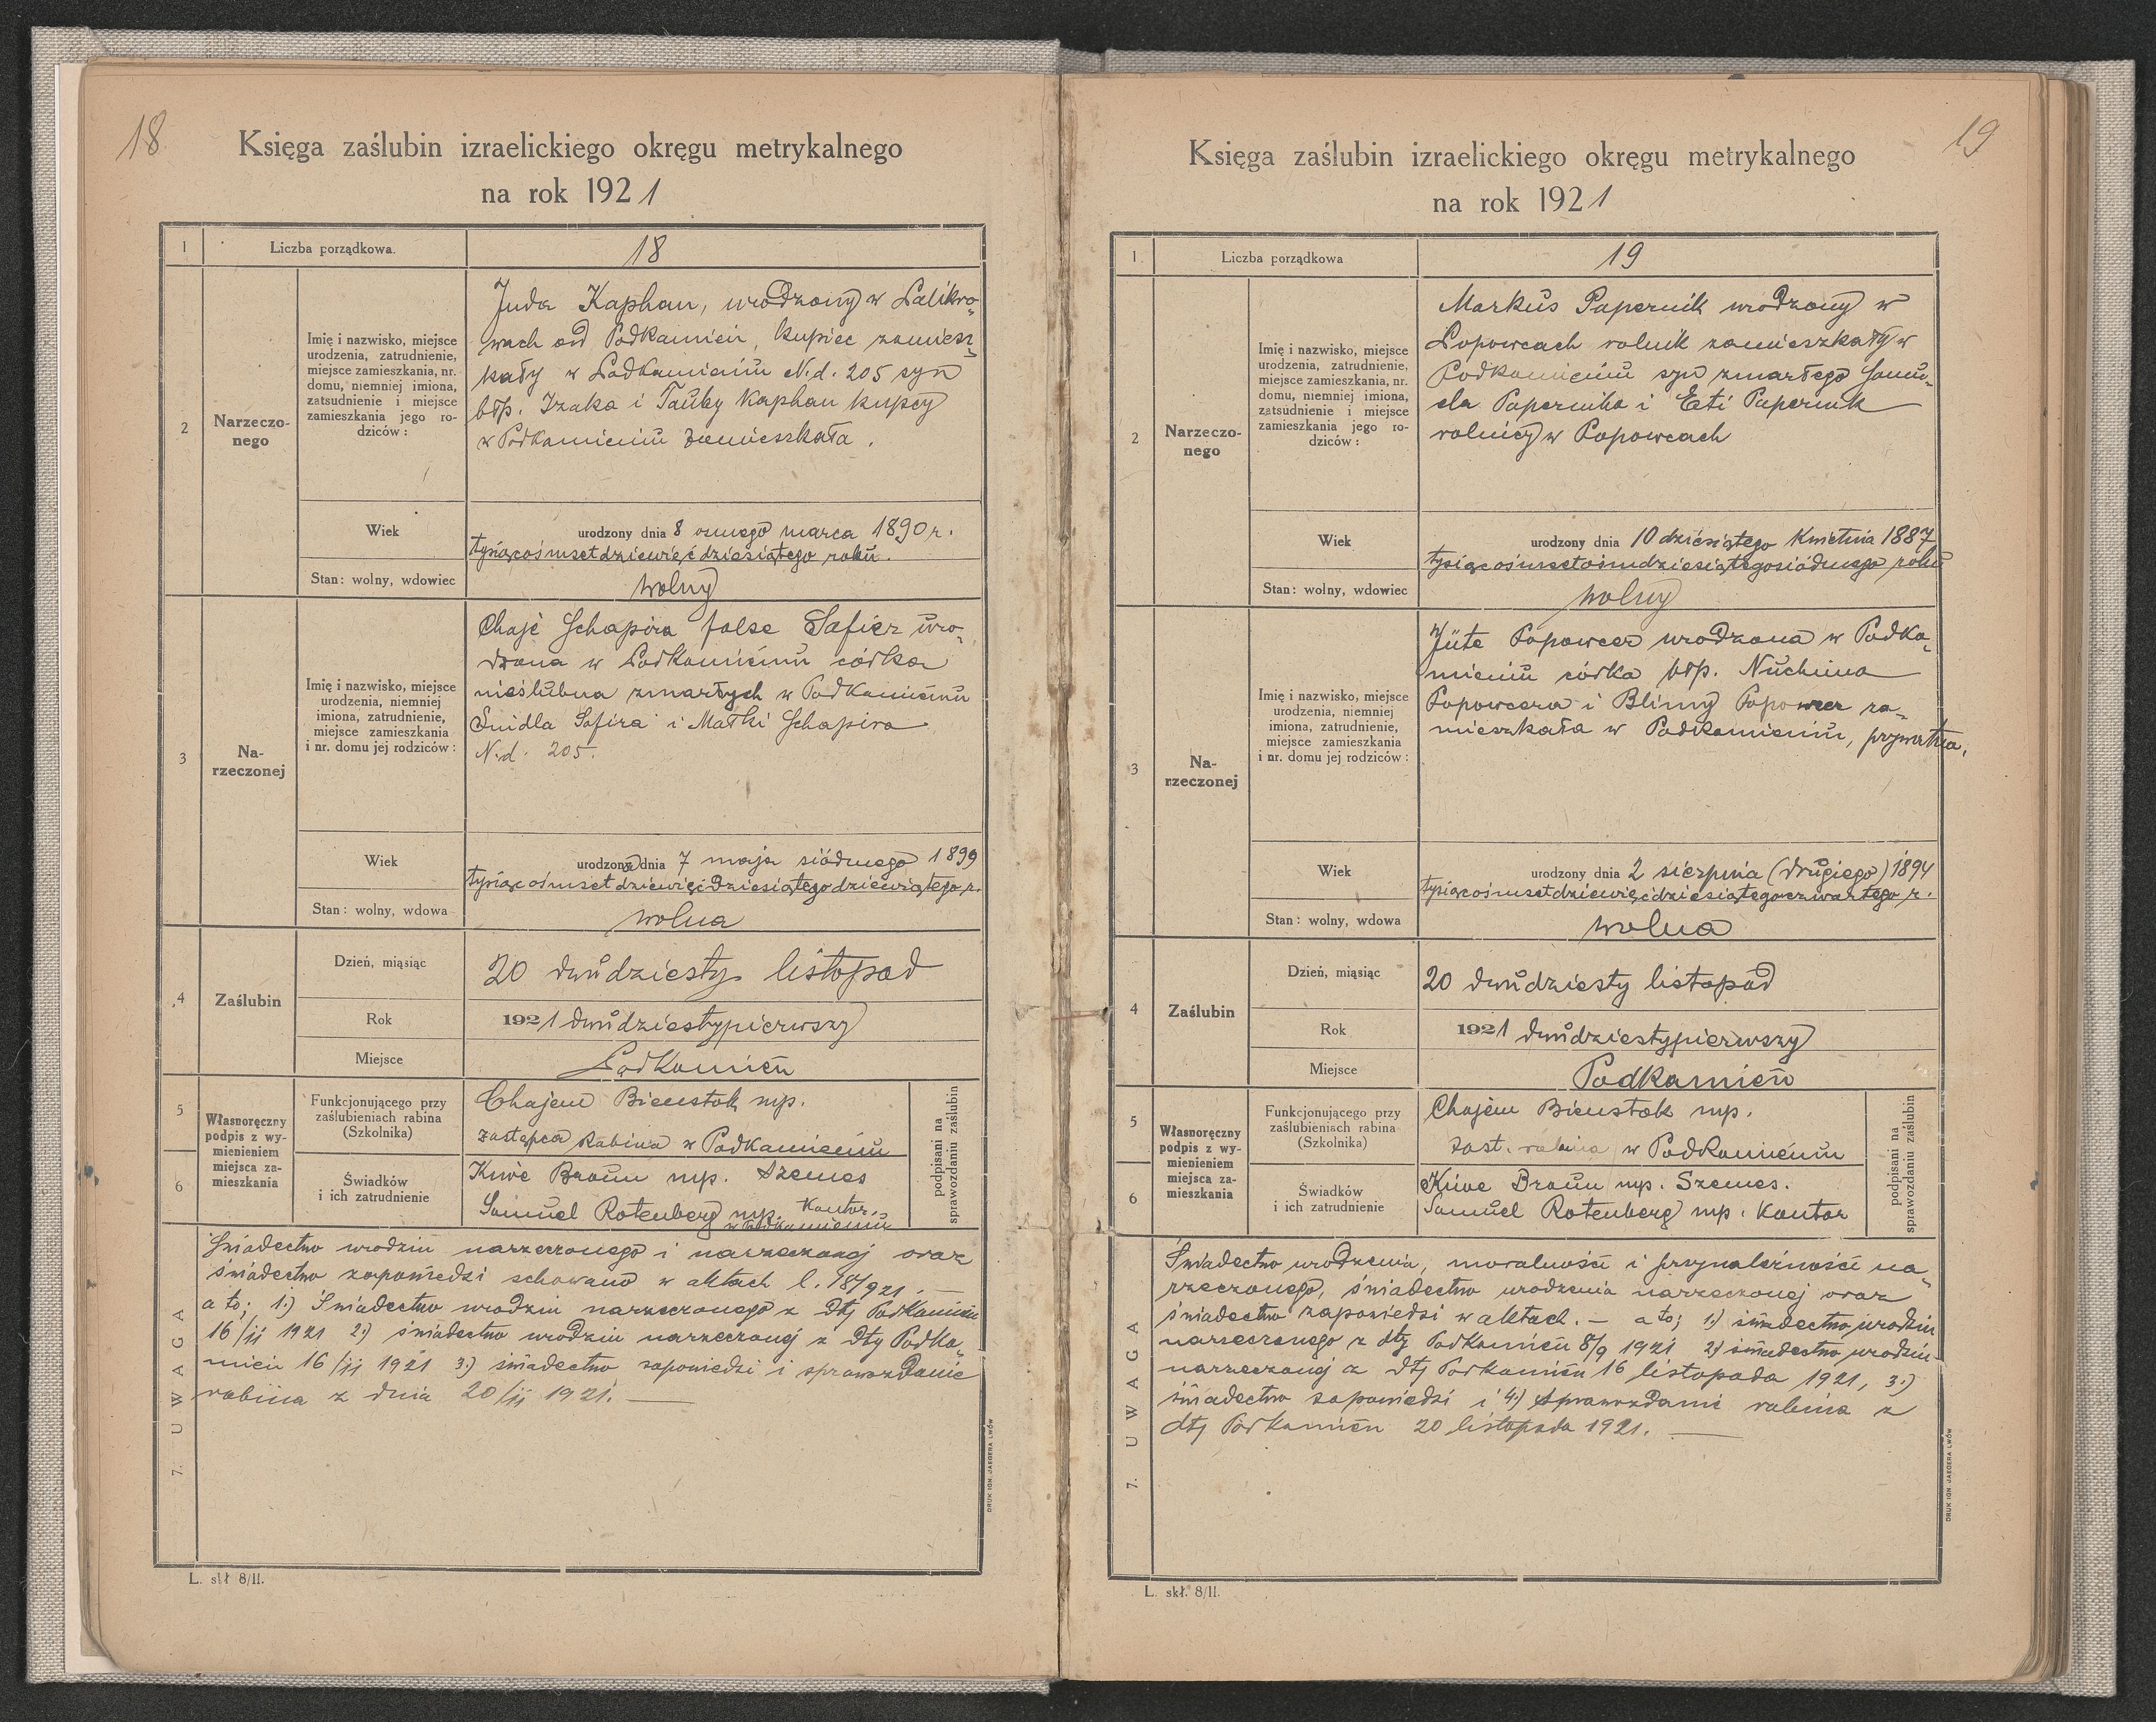 18
Księga zaślubin izraelickiego okręgu metrykalnego
na rok 1921
1
Liczba porządkowa.
18
2
Narzeczo-
nego
Imię i nazwisko, miejsce
urodzenia, zatrudnienie,
miejsce zamieszkania, nr.
domu, niemniej imiona,
zatsudnienie i miejsce
zamieszkania jego ro-
dziców :
Juda Kaphan, urodzony w Palikro-
wach ad Podkamień, kupiec zamiesz-
kały w Podkamieniu N.d. 205 syn
błp. Izaka i Tauby Kaphan kupcy
w Podkamieniu zamieszkała.
Wiek
urodzony dnia 8 osmego marca 1890 r.
tysiącośmsetdziewięćdziesiątego roku.
Stan: wolny, wdowiec
wolny
3
Na-
rzeczonej
Imię i nazwisko, miejsce
urodzenia, niemniej
imiona, zatrudnienie,
miejsce zamieszkania
i nr. domu jej rodziców :
Chaje Schapira false Safier uro-
dzona w Podkamieniu córka
nieślubna zmarłych w Podkamieniu
Safira i Małki Schapira
N.d. 205.
Wiek
urodzona dnia 7 maja siódmego 1899
tysiącośmset dziewięćdziesiątego dziewiątego r.
Stan: wolny, wdowa
wolna
4
Zaślubin
Dzień, miąsiąc
20 dwudziesty listopad
Rok
1921 dwudziestypierwszy
Miejsce
Podkamień
5
6
Własnoręczny
podpis z wy-
mienieniem
miejsca za-
mieszkania
Funkcjonującego przy
zaślubieniach rabina
(Szkolnika)
Chajem Bienstok mp.
zastępca Rabina w Podkamieniu
Świadków
i ich zatrudnienie
Kiwe Braun mp. Szemes
Samuel Rotenberg mp. Kantor
w Podkamieniu
podpisani na
sprawozdaniu zaślubin
7. UWAGA
Świadectwo urodzin narzeczonego i narzeczonej oraz
świadectwo zapowiedzi schowano w aktach l. 18/921. —
a to; 1.) Świadectwo urodzin narzeczonego z dtj Podkamień
16/ii 1921 2.) świadectwo urodzin narzeczonej z dtj Podka-
mień 16/ii 1921 3.) świadectwo zapowiedzi i sprawozdanie
rabina z dnia 20/ii 1921. —
L. skł 8/II.
DRUK IGN. JAEGERA LWÓW
19
Księga zaślubin izraelickiego okręgu metrykalnego
na rok 1921
1.
Liczba porządkowa
19
2
Narzeczo-
nego
Imię i nazwisko, miejsce
urodzenia, zatrudnienie,
miejsce zamieszkania, nr.
domu, niemniej imiona,
zatsudnienie i miejsce
zamieszkania jego ro-
dziców :
Markus Papernik urodzony w
Popowcach rolnik zamieszkały w
Podkamieniu syn zmarłego Samu-
ela Papernika i Eti Papernik
rolnicy w Popowcach
Wiek
urodzony dnia 10 dziesiątego Kwietnia 1887
tysiącośmsetośmdziesiątegosiódmego roku
Stan: wolny, wdowiec
wolny
3
Na-
rzeczonej
Imię i nazwisko, miejsce
urodzenia, niemniej
imiona, zatrudnienie,
miejsce zamieszkania
i nr. domu jej rodziców :
Jüte Popowcer urodzona w Podka-
mieniu córka błp. Nuchima
Popowcera i Blimy Popowcer za-
mieszkała w Podkamieniu, prywatna.
Wiek
urodzony dnia 2 sierpnia (drugiego) 1894
tysiącośmsetdziewięćdziesiątegoczwartego r.
Stan: wolny, wdowa
wolna
4
Zaślubin
Dzień, miąsiąc
20 dwudziesty listopad
Rok
1921 dwudziestypierwszy
Miejsce
Podkamień
5
6
Własnoręczny
podpis z wy-
mienieniem
miejsca za-
mieszkania
Funkcjonującego przy
zaślubieniach rabina
(Szkolnika)
Chajem Bienstok mp.
zast. rabina w Podkamieniu
Świadków
i ich zatrudnienie
Kiwe Braun mp. Szemes.
Samuel Rotenberg mp. Kantor
podpisani na
sprawozdaniu zaślubin
7. UWAGA
Świadectwo urodzenia, moralności i przynależności na-
rzeczonego, świadectwo urodzenia narzeczonej oraz
świadectwo zapowiedzi w aktach. — a to; 1) świadectwo urodzin
narzeczonego z dtj Podkamień 8/9 1921 2) świadectwo urodzin
narzeczonej z dtj Podkamień 16 listopada 1921, 3.)
świadectwo zapowiedzi i 4.) Sprawozdanie rabina z
dtj Podkamień 20 listopada 1921. —
L. skł. 8/II.
DRUK IGN. JAEGERA LWÓW